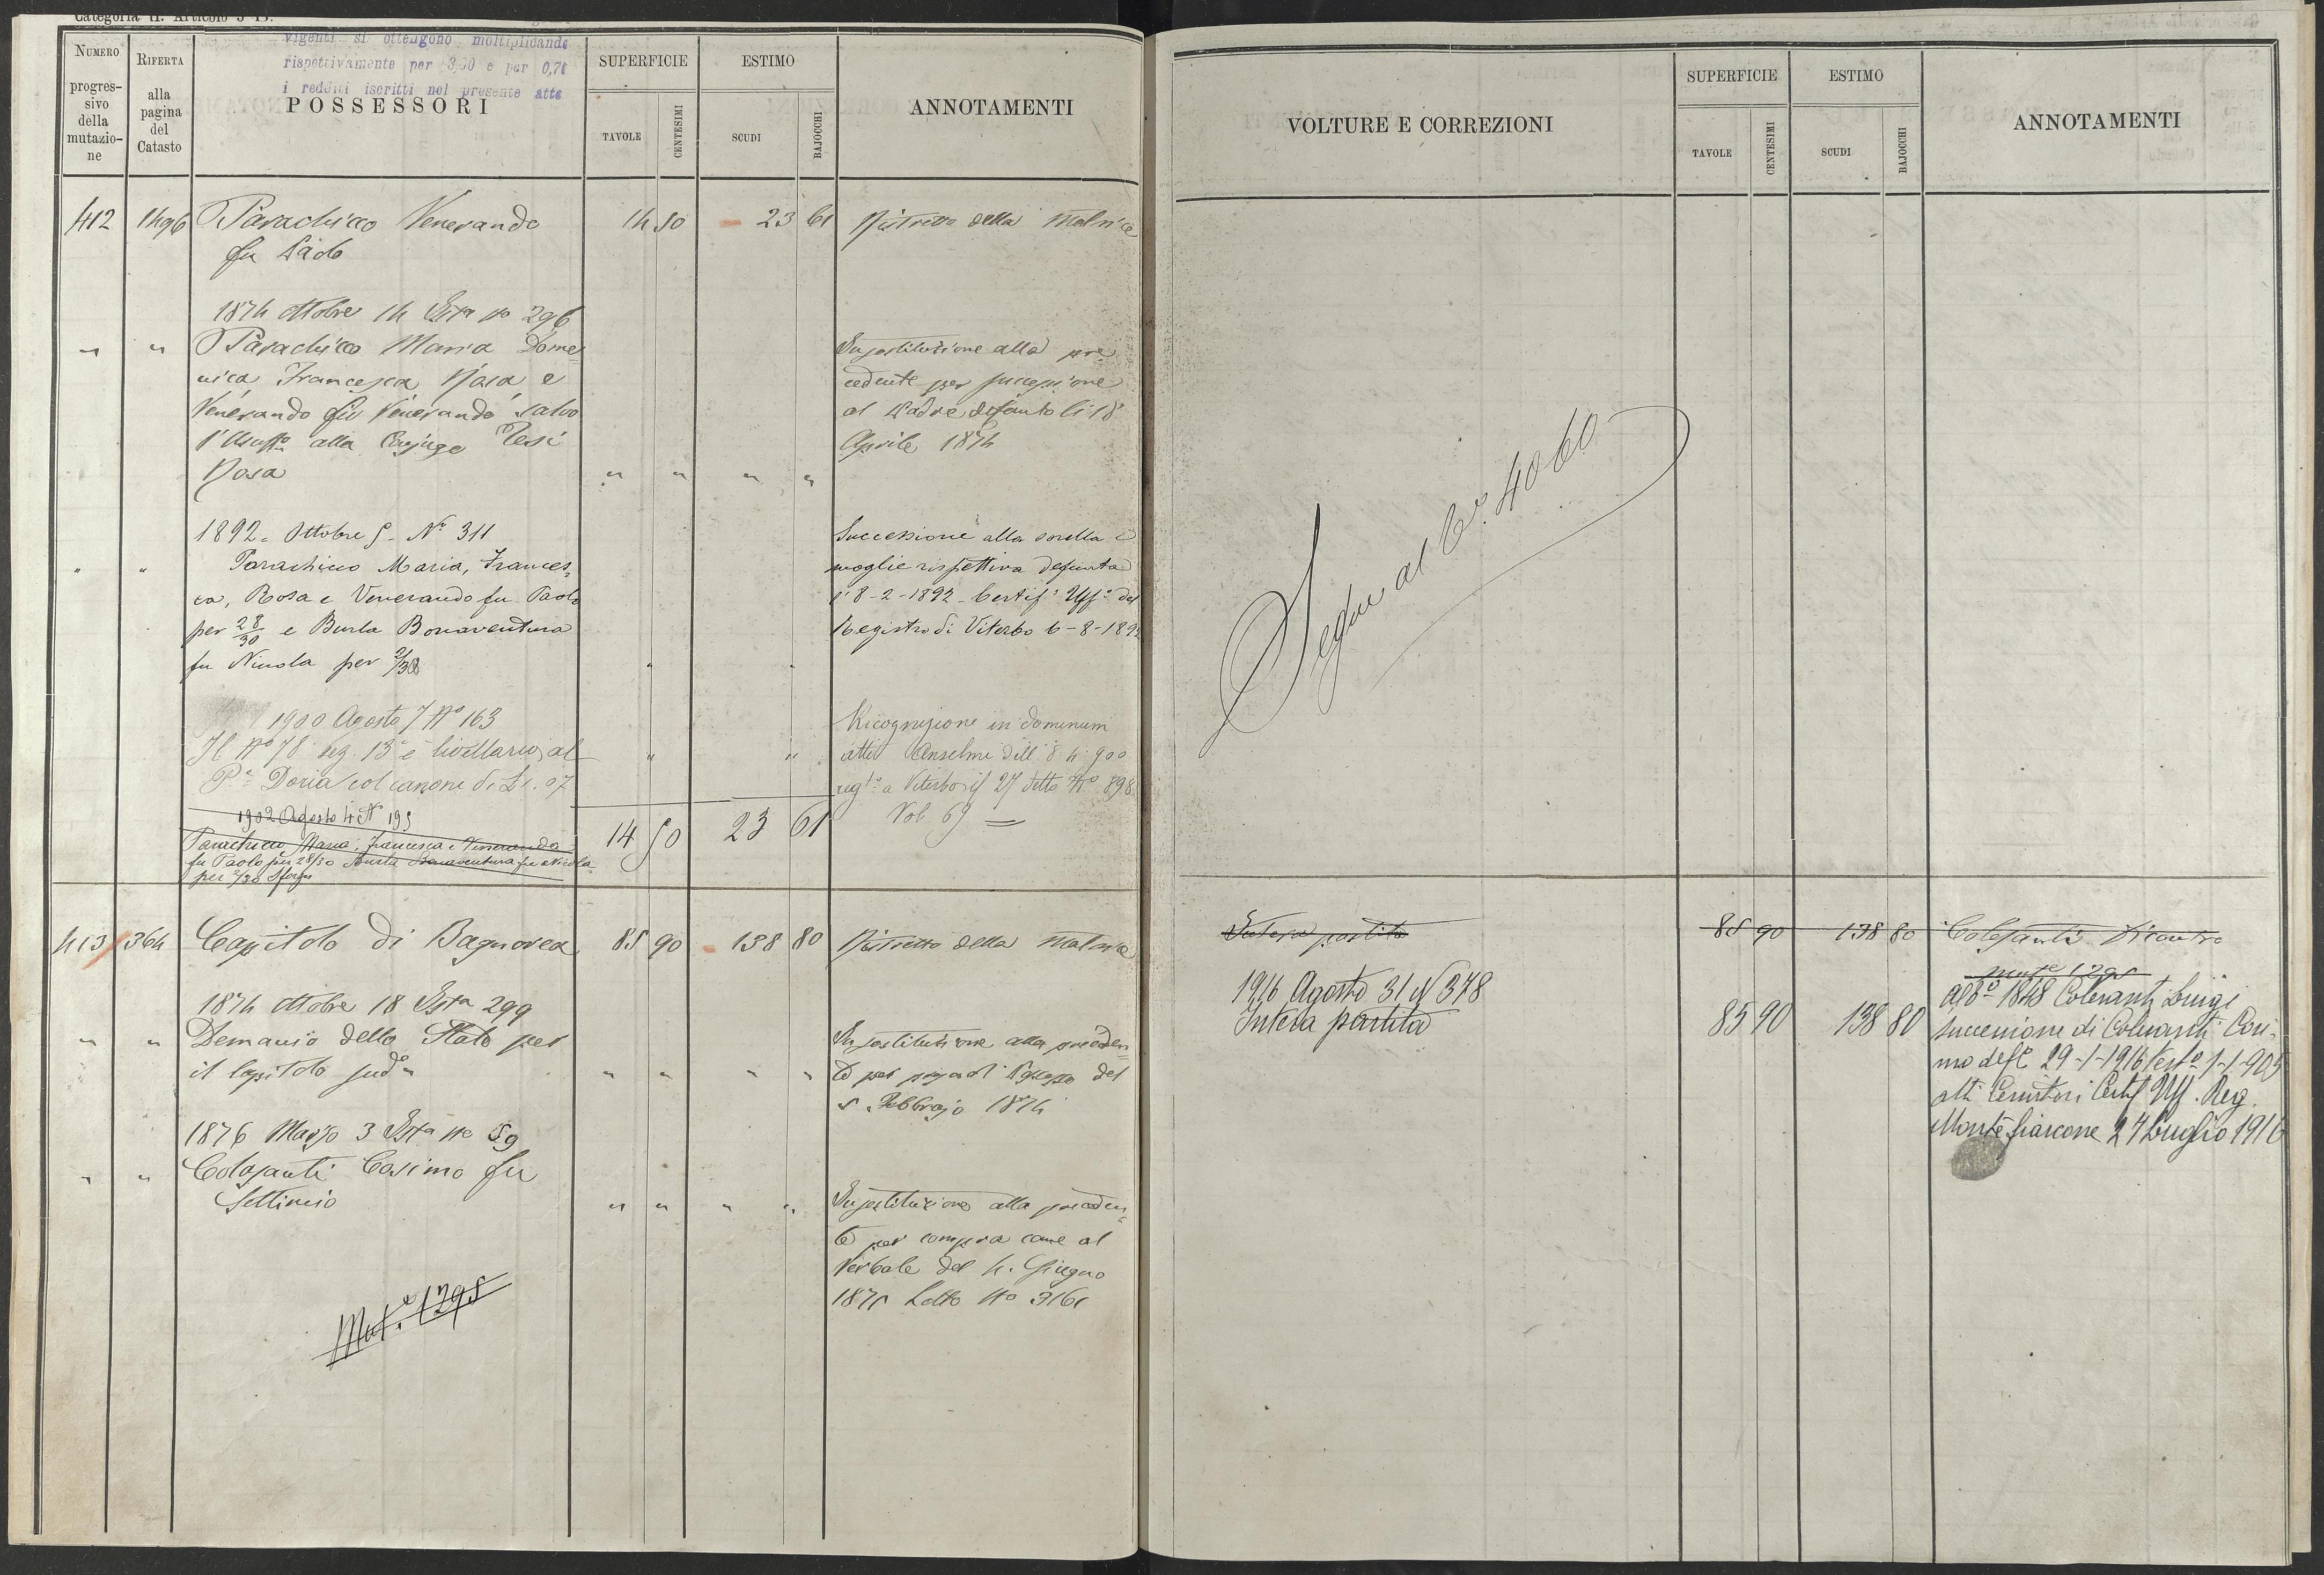 Categoria II. Articolo 3
vigenti si ottengono moltiplicando
rispettivamente per 3,00 e per 0,70
i redditi iscritti nel presente atto
NUMERO
progres-
sivo
della
mutazio-
ne
RIFERTA
alla
pagina
del
Catasto
POSSESSORI
SUPERFICIE
TAVOLE
CENTESIMI
ESTIMO
SCUDI
BAJOCCHI
ANNOTAMENTI
412 1496 Parachicco Venerando 14 50 23 61 Ristretto della Matrice
fu Paolo
1874 ottobre 14 Ista No 296
" " Parachicco Maria Dome=
nica Francesca Rosa e
Venerando fu Venerando salvo
l'Usuffo alla Conjuge Tesi
Rosa " " " "
In sostituzione alla pre=
cedente per successione
al Padre defunto li 18
Aprile 1874
1892 = Ottobre 5 - No 311
" " Parachicco Maria, Frances=
ca, Rosa e Venerando fu Paolo
per 28/30 e Burla Bonaventura
fu Nicola per 2/30 " "
Successione alla sorella e
moglie rispettiva defunta
l'8-2-1892 Certifo Uffo del
Registro di Viterbo 6-8-1892
1900 Agosto 7 No 163
Il No 78 sez. 13a è livellario al
Pe Doria col canone di L 1.07
" "
Ricognizione in dominum
atti Anselmi dell'8 4 900
regto a Viterbo il 27 detto No 898
Vol. 69
1902 Agosto 4 N 195
Parachicco Maria, Francesca e Venerando
fu Paolo per 28/30 Burla Bonaventura fu Nicola
per 2/30
14 50 23 61
413 364 Capitolo di Bagnorea 85 90 138 80 Ristretto della Matrice
1874 ottobre 18 Ista 299
" " Demanio dello Stato per
il Capitolo sudo " " " "
In sostituzione alla preceden=
te per presa di Possesso del
5 Febbrajo 1874
1876 Marzo 3 Ista No 59
" " Colesanti Cosimo fu
Settimio " " " "
In sostituzione alla preceden=
te per compra come al
Verbale del 4. Giugno
1875 Lotto No 3161
Mut.e 1295
VOLTURE E CORREZIONI
SUPERFICIE
TAVOLE
CENTESIMI
ESTIMO
SCUDI
BAJOCCHI
ANNOTAMENTI
Segue al No. 4060
Intera partita 85 90 138 80 Colesanti Dicontro
mute 1295
1916 Agosto 31 N 378
Intera partita 85 90 138 80
Al No 1848 Colesanti Luigi
successione di Colesanti Cosi=
mo defto 29-1-1916 Testo 1-1-905
atti Certif Uff. Reg.
Montefiascone 27 Luglio 1916